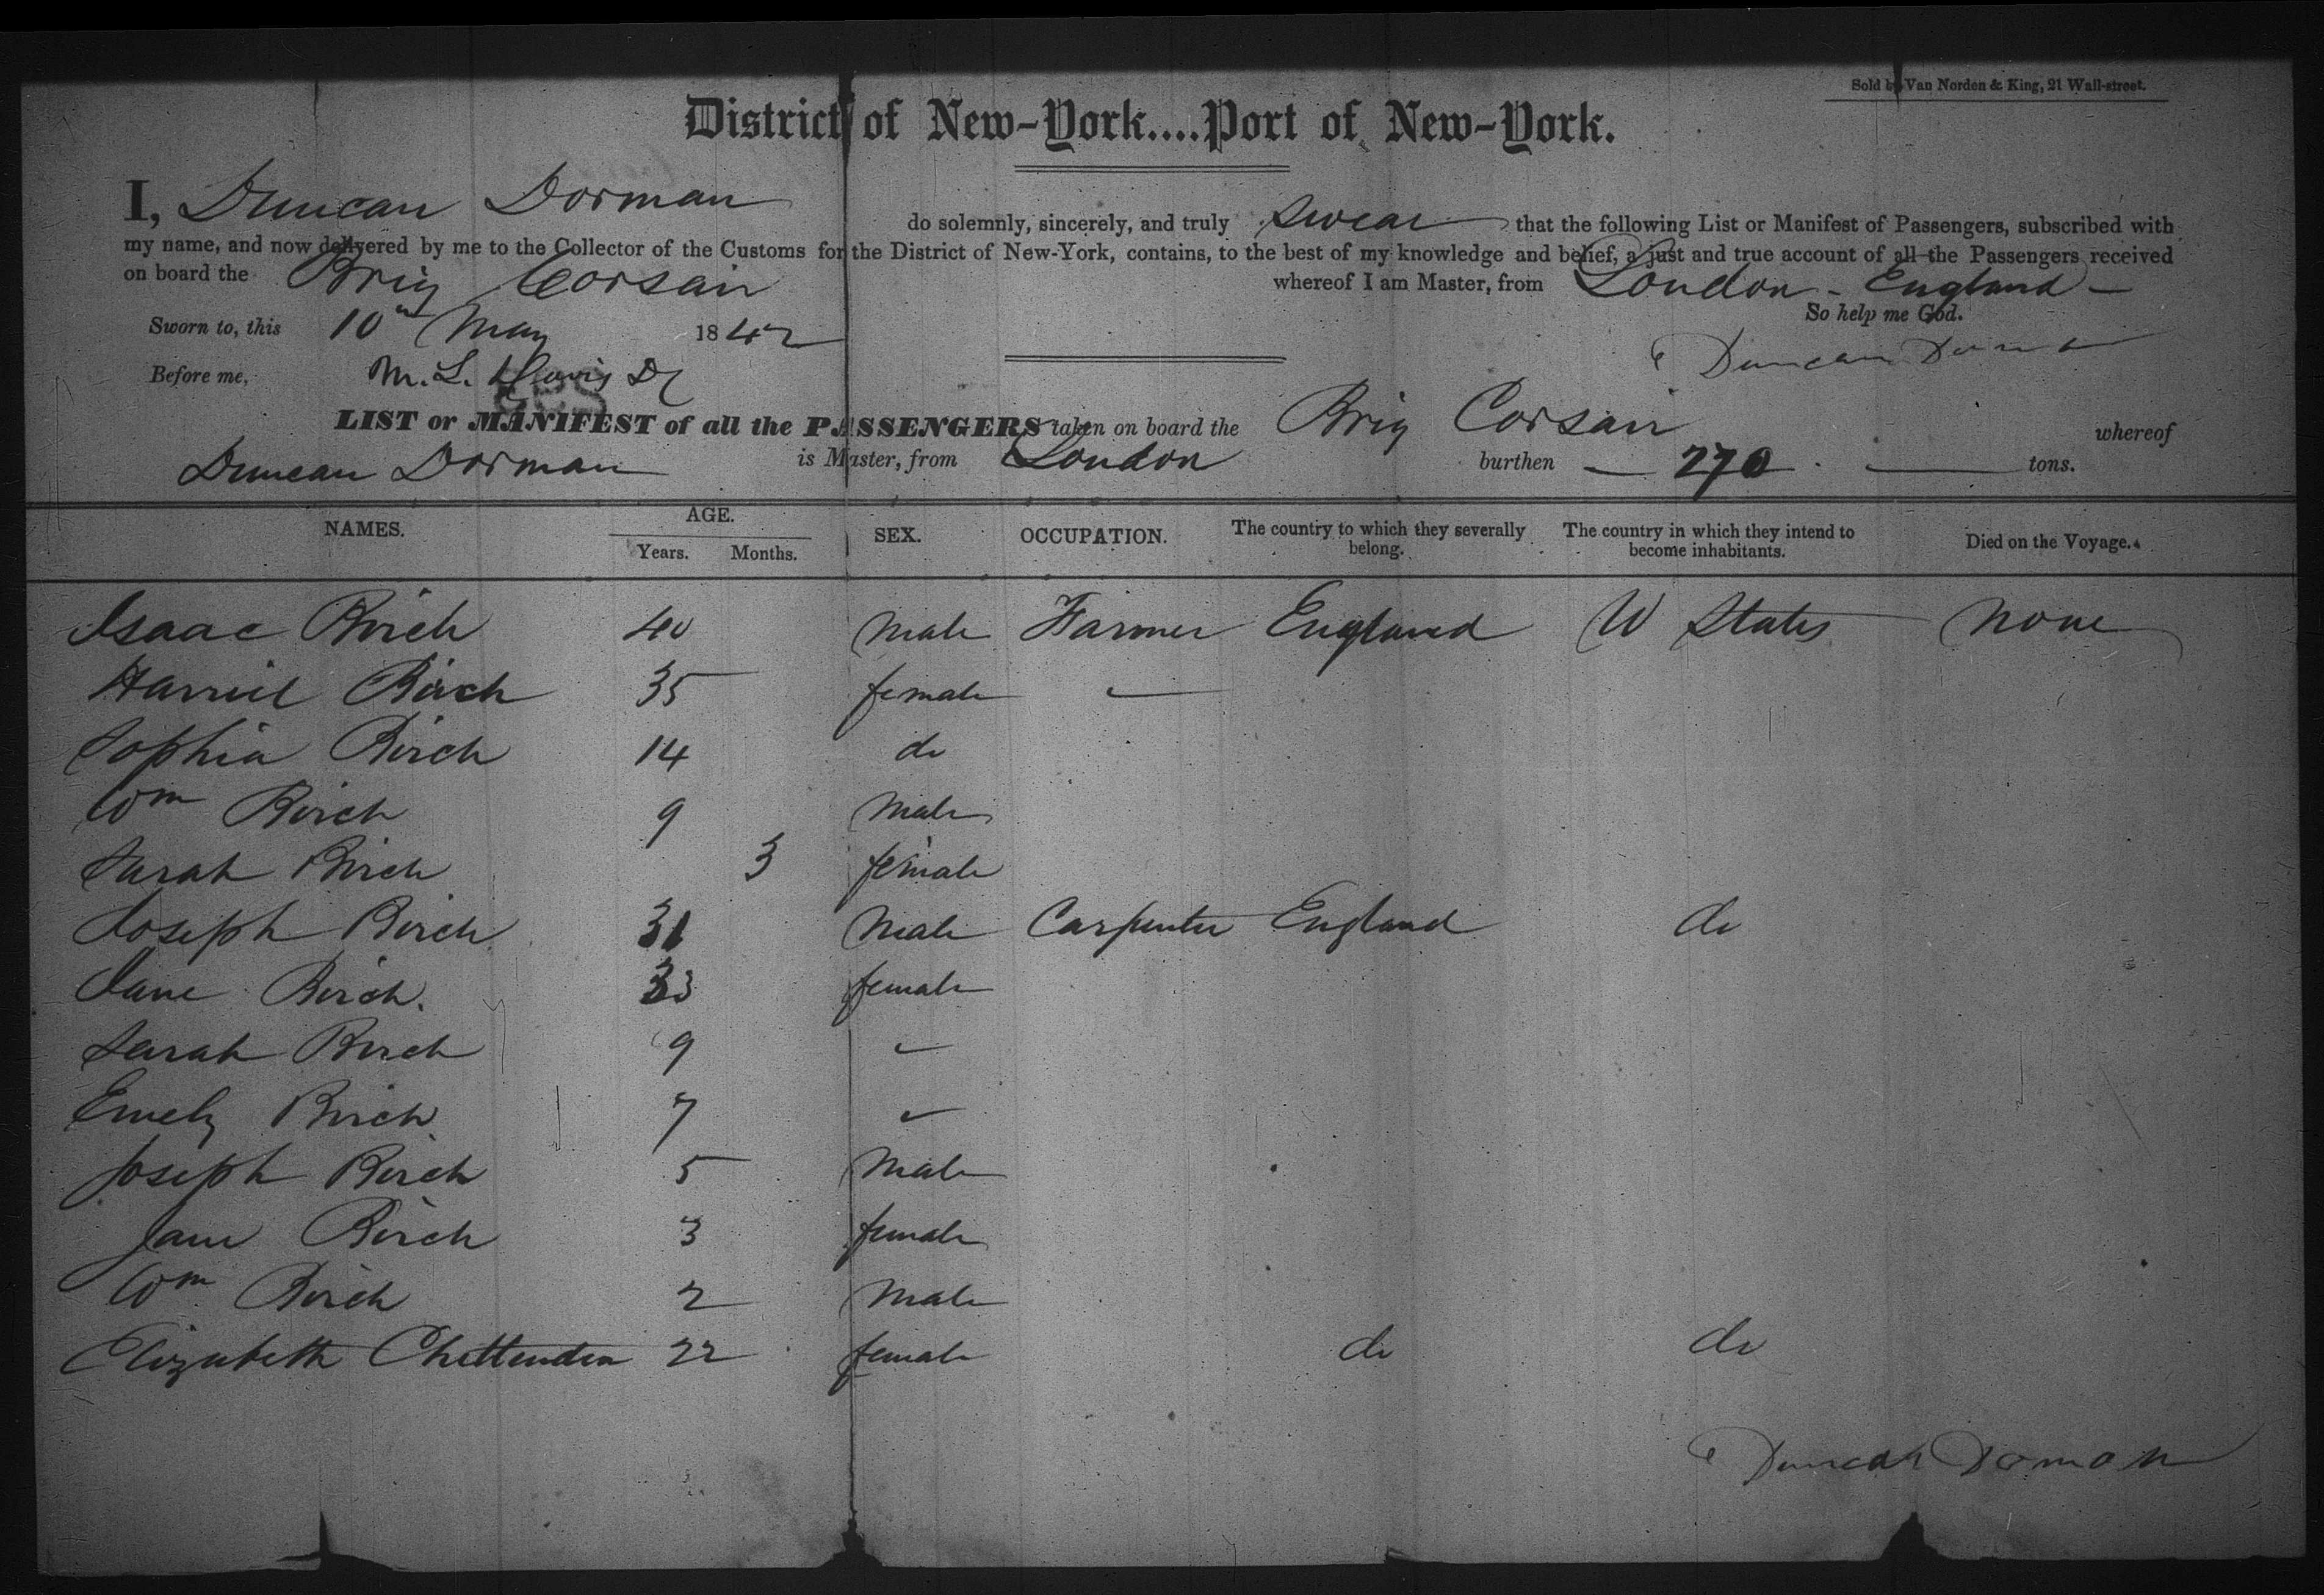 Sold by Van Norden & King, 21 Wall-street.
District of New-York....Port of New-York.
I, Duncan Dorman do solemnly, sincerely, and truly swear that the following List or Manifest of Passengers, subscribed with
my name, and now delivered by me to the Collector of the Customs for the District of New-York, contains, to the best of my knowledge and belief, a just and true account of all the Passengers received
on board the Brig Corsair whereof I am Master, from London - England -
So help me God.
Sworn to, this 10th May 1842
Duncan Dorman
Before me, M. L. Davis
LIST or MANIFEST of all the PASSENGERS taken on board the Brig Corsair whereof
Duncan Dorman is Master, from London burthen 270 tons.
NAMES. AGE. SEX. OCCUPATION. The country to which they severally belong. The country in which they intend to become inhabitants. Died on the Voyage.
Years. Months.
Isaac Birch 40 Male Farmer England U States None
Harriet Birch 35 female —
Sophia Birch 14 do
Wm Birch 9 Male
Sarah Birch 3 female
Joseph Birch 31 Male Carpenter England do
Jane Birch. 33 female
Sarah Birch 9 ~
Emely Birch 7 ~
Joseph Birch 5 Male
Jane Birch 3 female
Wm Birch 2 Male
Elizabeth Chittenden 22 female do do
Duncan Dorman